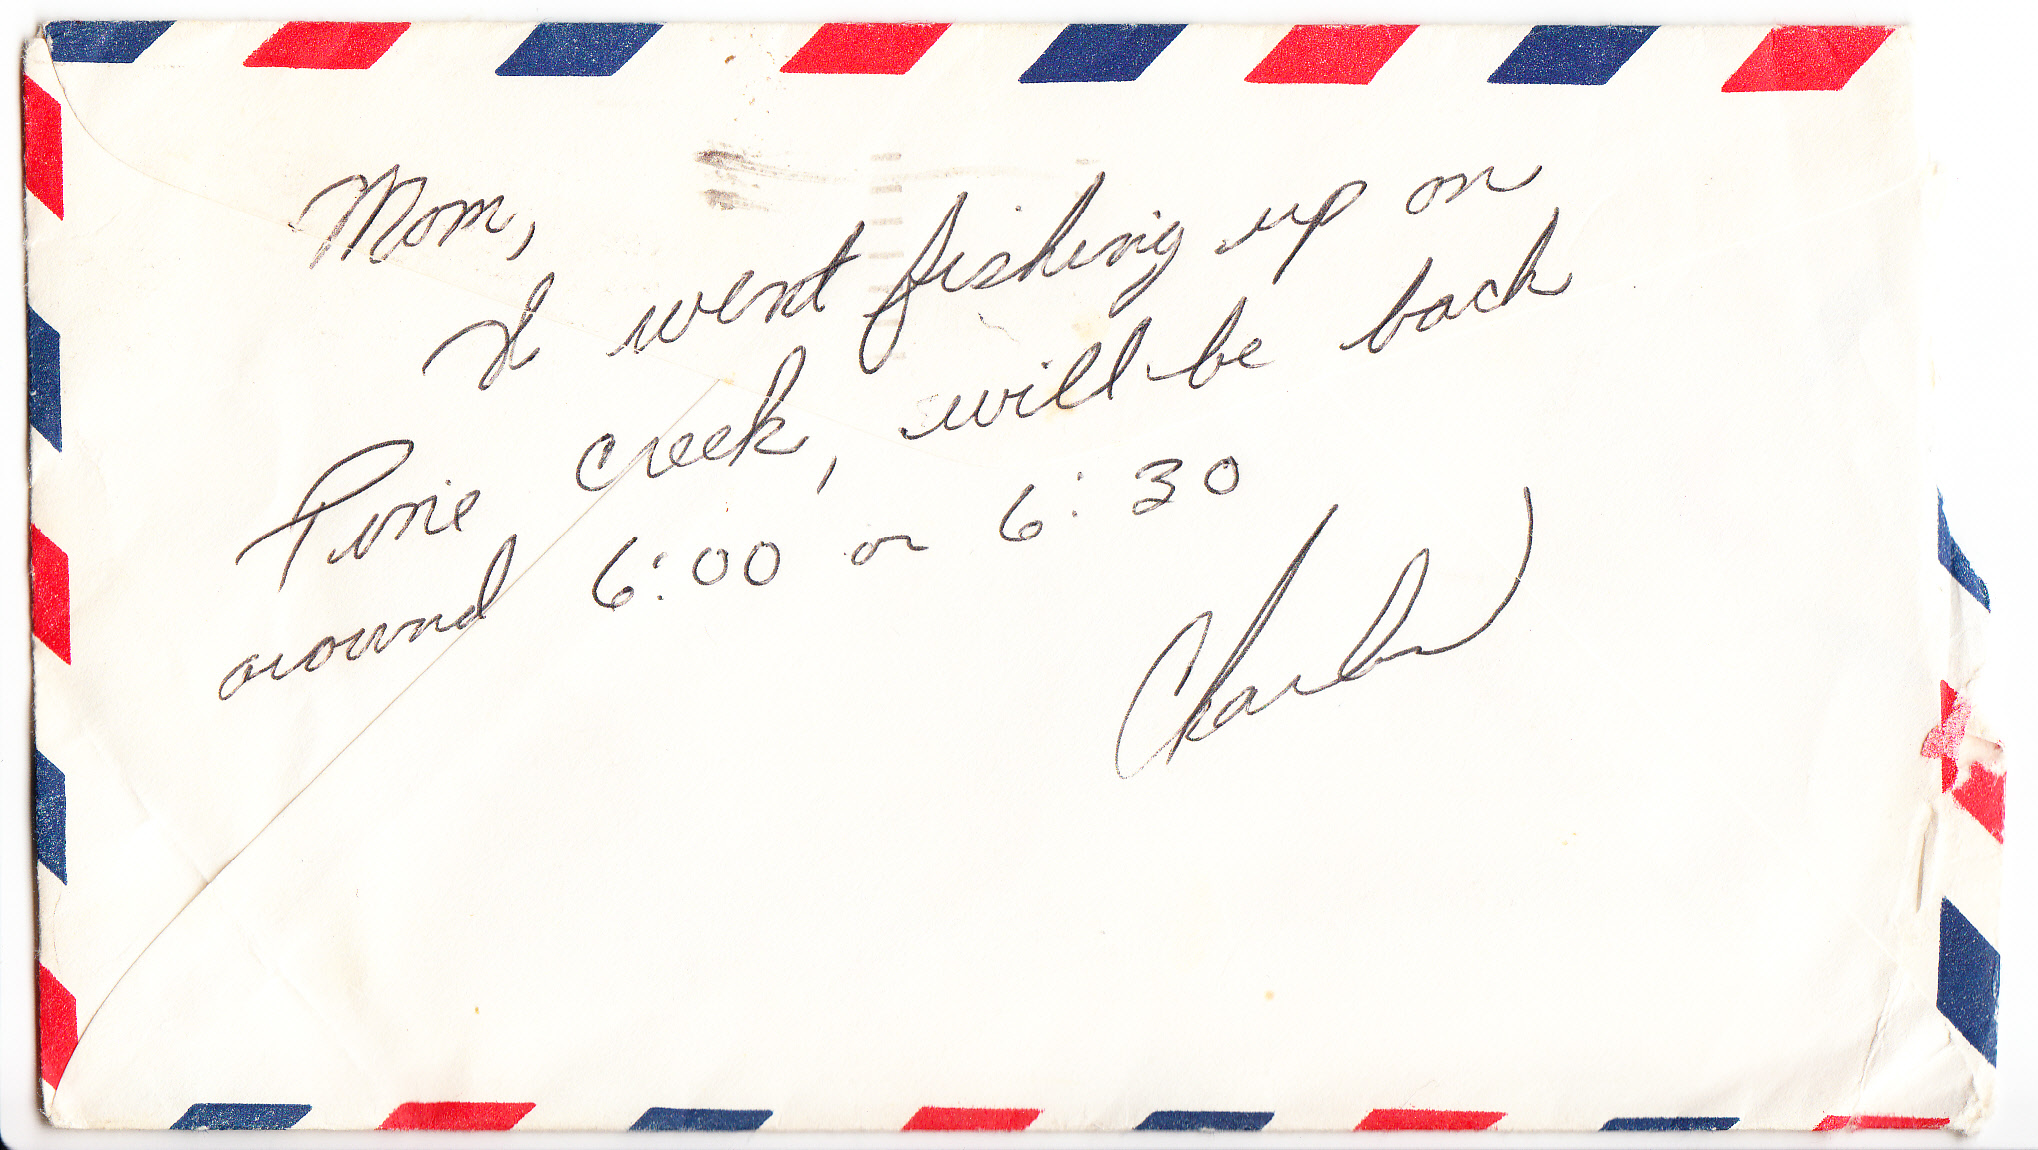 Mom,
I went fishing up on
Pine creek, will be back
around 6:00 or 6:30
Charles